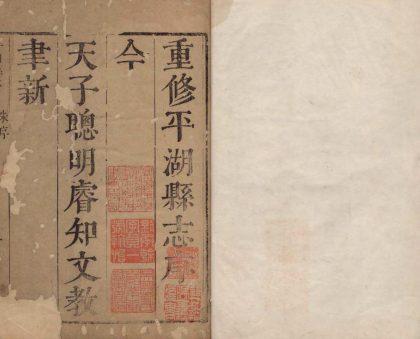 重修平湖縣志序
今
天子聰明睿知文教
聿新